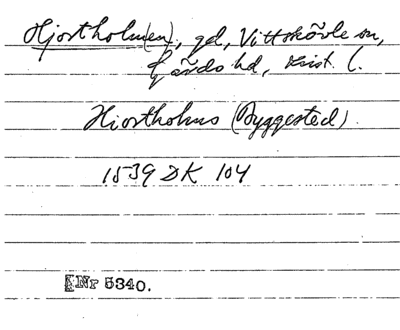 Hjortholm(en), gd, Vittskövle sn,
Gärds hd, Krist. l.
Hiortholms (Byggested)
1539 DK 104
Nr 5340.